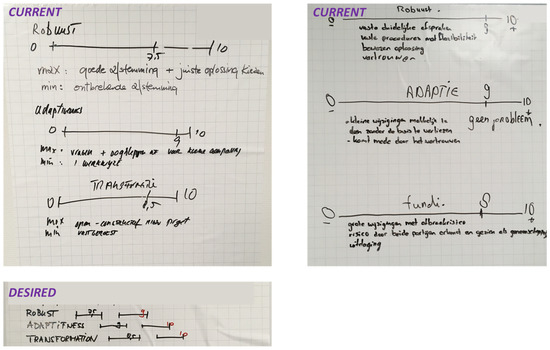 CURRENT
Robuust
0 10
7,5
max : goede afstemming + juiste oplossing kiezen
min : ontbrekende afstemming
0 10
9
max
min
TRANSFORMATIE
0 10
8,5
max open - constructief
min
CURRENT
Robuust.
0 10
9 +
vaste duidelijke afspraken
vaste procedures met flexibiliteit
bewezen oplossing
vertrouwen
ADAPTIE 9
0 10
- +
- kleine wijzigingen makkelijk te geen probleem.
doen zonder de basis te verliezen
- komt mede door het vertrouwen
fundi. 8
0 10
- +
grote wijzigingen met afbreukrisico
risico door beide partijen erkend en gezien als gemeenschappelijke
uitdaging
DESIRED
ROBUST 7,5 9
ADAPTIFNESS 9 10
TRANSFORMATION 8,5 10